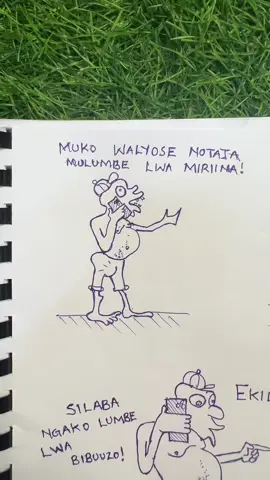 MUKO WALYOSE NOTATA
MULUMBE LWA MIRIINA!
SILABA
NGAKO LUMBE
LWA
BIBUUZO!